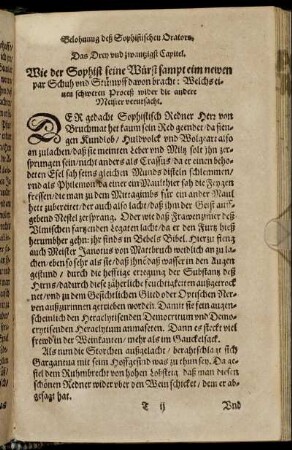 Belohnung deß Sophistischen Orators,
Das Drey vnd zwantzigst Capitel.
Wie der Sophist seine Würst sampt eim newen
par Schuh vnd Strümpff davon bracht: Welchs ei-
nen schweren Proceß wider die andere
Meister verursacht.
DER gedacht Sophistisch Redner Herr von
Bruchmat het kaum sein Red geendet/ da fien-
gen Kundlob/ Huldvolck vnd Wolgart also
an zulachen/ daß sie meinten Leber vnd Miltz solt ihn zer-
springen sein/ nicht anders als Crassus/ da er einen beho-
deten Esel sah seins gleichen Munds disteln schlemmen/
vnd als Philemon da einer ein Maulthier sah die Feygen
fressen/ die man zu dem Mittagimbß für ein ander Maul
hett zubereitet/ der auch also lacht/ daß ihm der Geist auff-
gebend Nestel zersprang. Oder wie daß Frawenzimer deß
Vlmischen fartzenden Legaten lacht/ da er den Furtz hieß
herumbher gehn: ihr finds in Bebels Bibel. Hierzu fieng
auch Meister Janotus von Mattbruch weidlich an zu la-
chen/ eben so sehr als sie/ daß ihn das wasser in den Augen
gestund/ durch die hefftige erregung der Substantz deß
Hirns/ dadurch diese zäherliche feuchtigkeiten außgetrock-
net/ vnd zu dem Gesichtlichen Glied oder Optischen Ner-
ven außzurinnen getrieben worden. Damit sie sein augen-
scheinlich den Heraclytisenden Democritum vnd Demo-
crytisenden Heraclytum anmaseten. Dann es steckt viel
frewd in der Weinkanten/ mehr als im Gauckelsack.
Als nun die Storchen außgelacht/ berahtschlagt sich
Gargantua mit seim Hoffgesind was zu thun sey. Da ge-
fiel dem Ruhmbrecht von hohen Lobsteig/ daß man diesen
schönen Redner wider vber den Wein schicket/ dem er ab-
gesagt hat.
T ij
Vnd